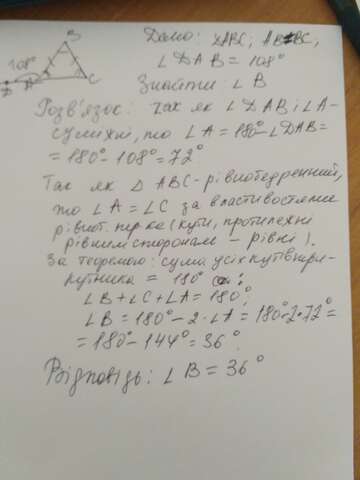 B
108°
D A C
Дано: △ABC; AB=BC,
∠DAB = 108°
Знайти: ∠B
Розв'язок: так як ∠DAB і ∠A-
суміжні, то ∠A = 180°-∠DAB=
= 180° - 108° = 72°
Так як △ ABC - рівнобедренний,
то ∠A = ∠C за властивостями
рівноб. тр-ка (кути, протилежні
рівним сторонам - рівні).
За теоремою: сума усіх кутів три-
кутника = 180°:
∠B + ∠C + ∠A = 180°,
∠B = 180° - 2·∠A = 180°-2·72° =
= 180° - 144° = 36°.
Відповідь: ∠B = 36°